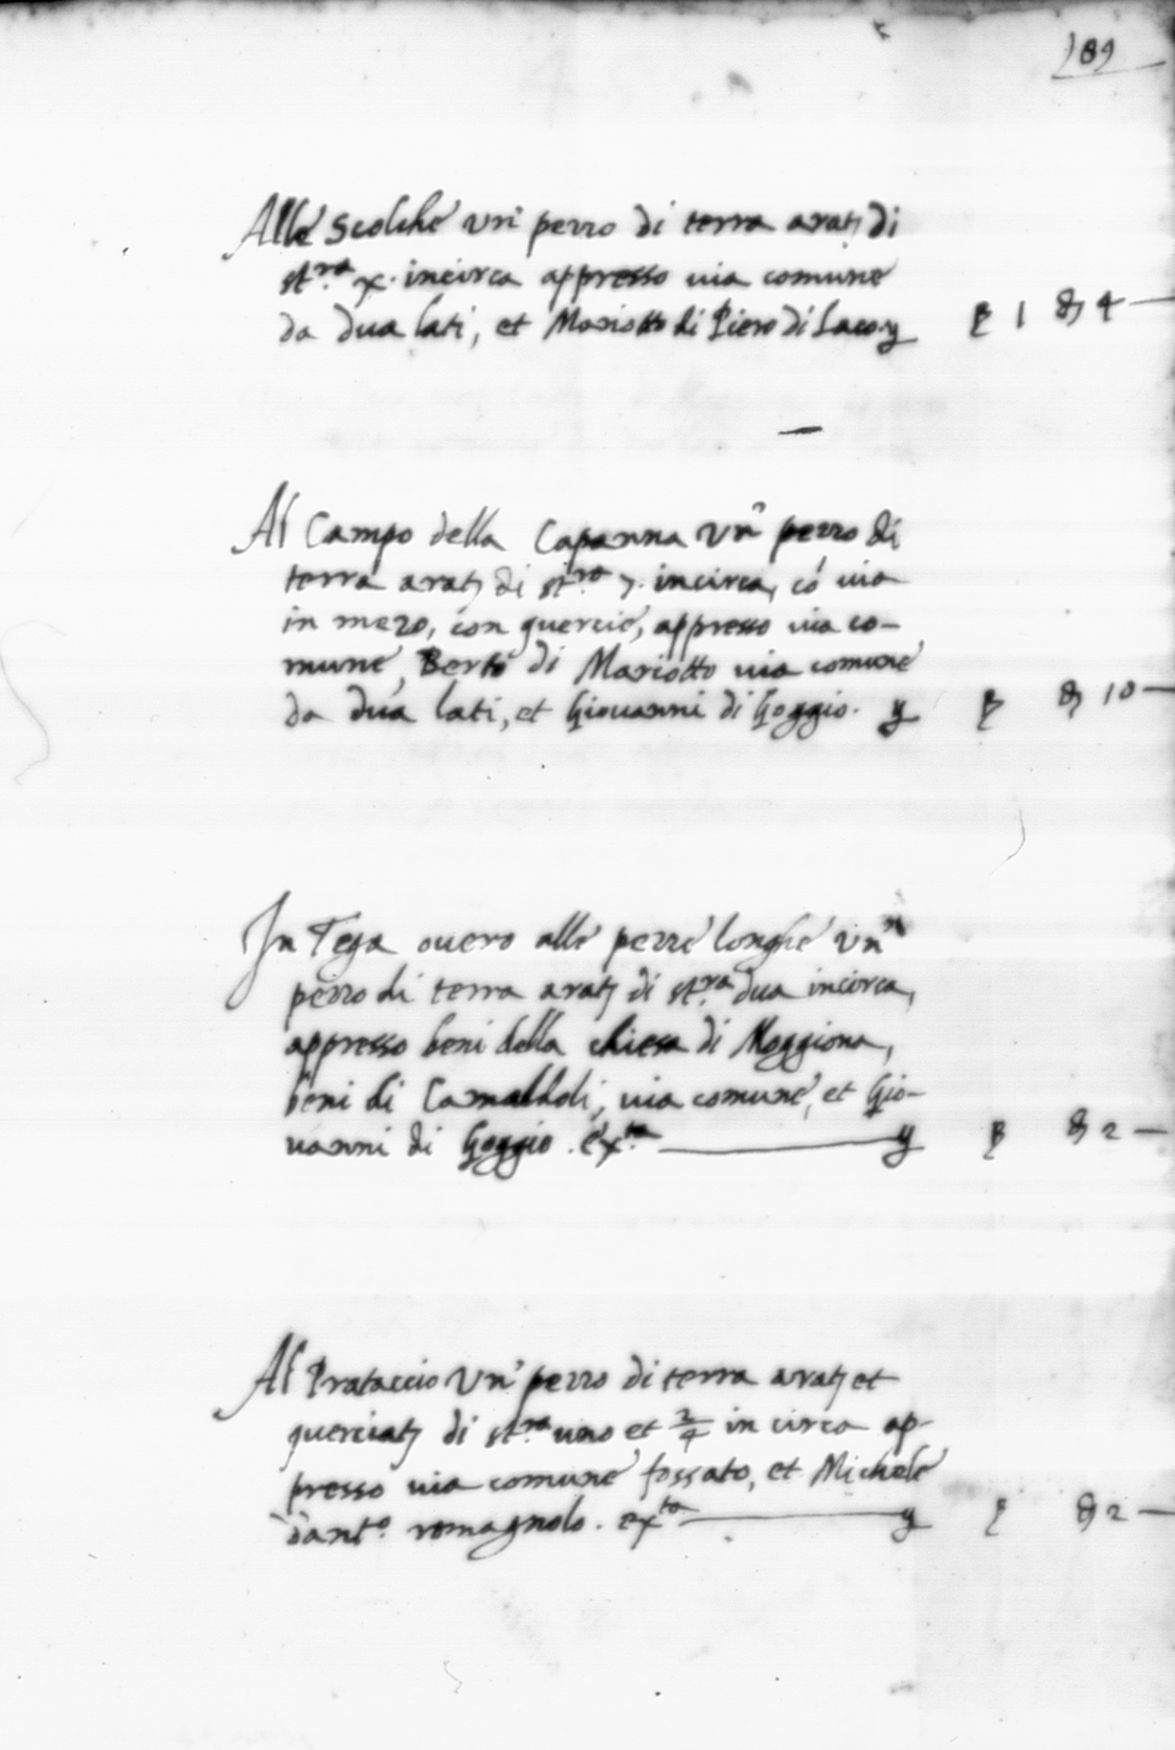 189
Alle Scolche un' pezzo di terra arat. di
st.ra x. incirca appresso via comune
da dua lati, et Mariotto di Piero di Laco. y 1 4
Al Campo della Capanna un' pezzo di
terra arat. di st.ra 7. incirca, có via
in mezo, con quercie, appresso via co-
mune, Berto di Mariotto via comune
da dua lati, et Giovanni di Goggio. y 10
In Tega overo alle pezze longhe un'
pezzo di terra arat. di st.ra dua incirca,
appresso beni della chiesa di Moggiona,
beni di Camaldoli, via comune, et Gio-
vanni di Goggio. ex.ta y 2
Al Prataccio un' pezzo di terra arat. et
querciat. di st.ra uno et 2/4 in circa ap-
presso via comune fossato, et Michele
d'ant.o romagnolo. ex.ta y 2